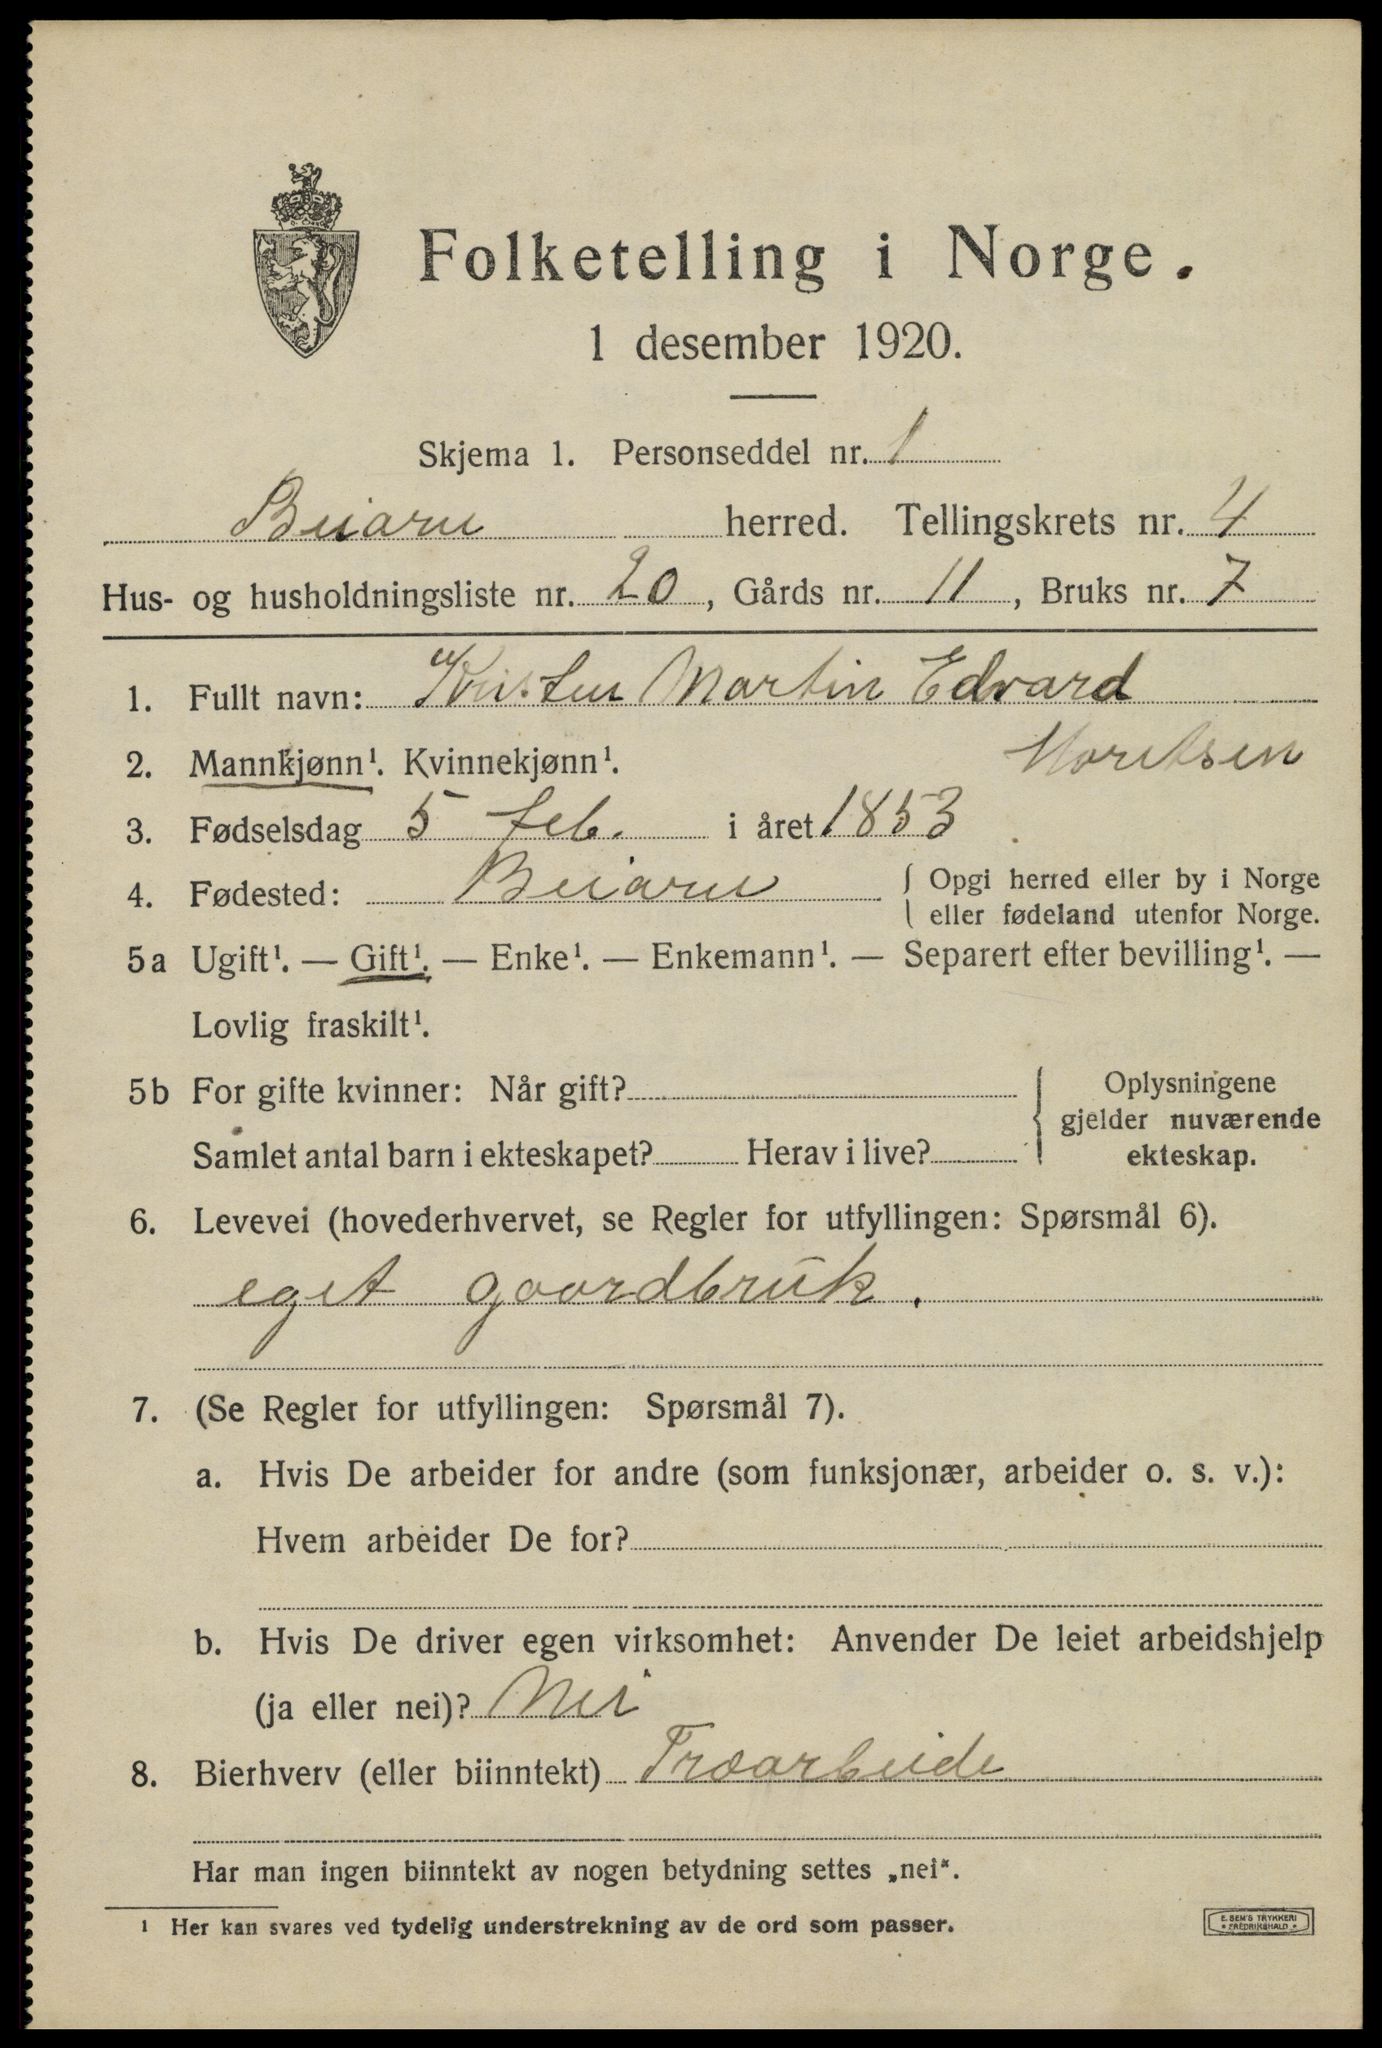 Folketelling i Norge.
1 desember 1920.
Skjema 1. Personseddel nr. 1
Beiarn herred. Tellingskrets nr. 4
Hus- og husholdningsliste nr. 20, Gårds nr. 11, Bruks nr. 7
1. Fullt navn: Kristen Martin Edvard
Moritsen
2. Mannkjønn¹. Kvinnekjønn¹.
3. Fødselsdag 5 feb. i året 1853
4. Fødested: Beiarn { Opgi herred eller by i Norge
eller fødeland utenfor Norge.
5a Ugift¹. — Gift¹. — Enke¹. — Enkemann¹. — Separert efter bevilling¹. —
Lovlig fraskilt¹.
5b For gifte kvinner: Når gift?
Samlet antal barn i ekteskapet? Herav i live?
{ Oplysningene
gjelder nuværende
ekteskap.
6. Levevei (hovederhvervet, se Regler for utfyllingen: Spørsmål 6).
eget gaardbruk.
7. (Se Regler for utfyllingen: Spørsmål 7).
a. Hvis De arbeider for andre (som funksjonær, arbeider o. s. v.):
Hvem arbeider De for?
b. Hvis De driver egen virksomhet: Anvender De leiet arbeidshjelp
(ja eller nei)? Nei
8. Bierhverv (eller biinntekt) Træarbeide
Har man ingen biinntekt av nogen betydning settes „nei“.
¹ Her kan svares ved tydelig understrekning av de ord som passer.
E. SEM'S TRYKKERI
* FREDRIKSHALD *